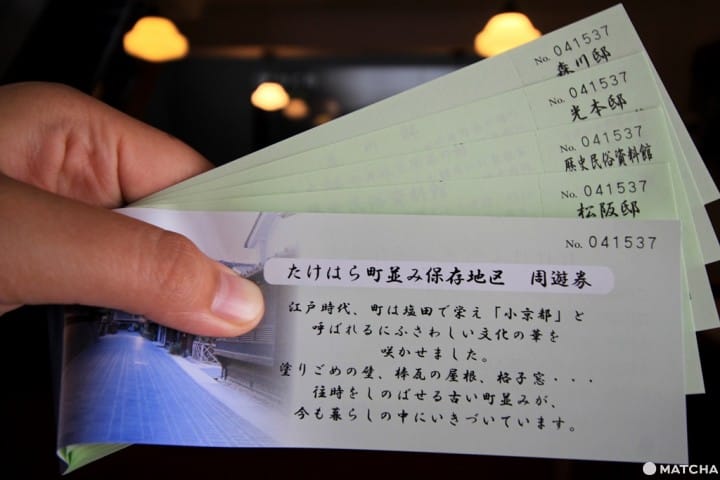 No. 041537
森川邸
No. 041537
光本邸
No. 041537
歴史民俗資料館
No. 041537
松阪邸
No. 041537
たけはら町並み保存地区 周遊券
江戸時代、町は塩田で栄え「小京都」と
呼ばれるにふさわしい文化の華を
咲かせました。
塗りごめの壁、棒瓦の屋根、格子窓・・・
往時をしのばせる古い町並みが、
今も暮らしの中にいきづいています。
MATCHA